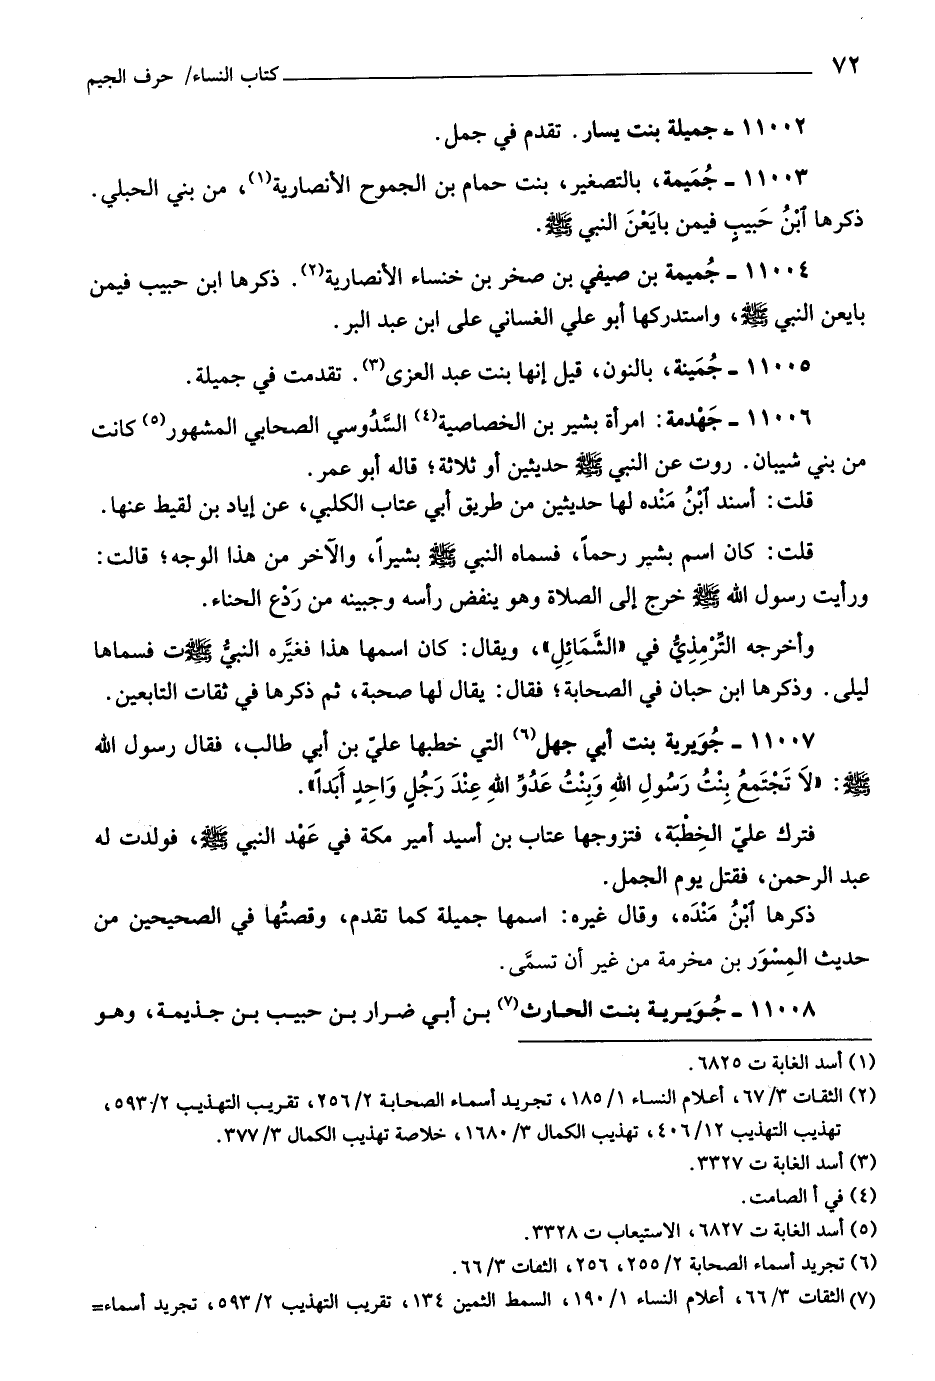 ٧٢ كتاب النساء/ حرف الجيم
١١٠٠٢ - جميلة بنت يسار. تقدم في جمل.
١١٠٠٣ - جُمَيمة، بالتصغير، بنت حمام بن الجموح الأنصارية(١)، من بني الحبلي.
ذكرها ٱبْنُ حَبيبٍ فيمن بايَعْنَ النبي ﷺ.
١١٠٠٤ - جُميمة بن صيفي بن صخر بن خنساء الأنصارية(٢). ذكرها ابن حبيب فيمن
بايعن النبي ﷺ، واستدركها أبو علي الغساني على ابن عبد البر.
١١٠٠٥ - جُمَينة، بالنون، قيل إنها بنت عبد العزى(٣). تقدمت في جميلة.
١١٠٠٦ - جَهْدمة: امرأة بشير بن الخصاصية(٤) السَّدُوسي الصحابي المشهور(٥) كانت
من بني شيبان. روت عن النبي ﷺ حديثين أو ثلاثة؛ قاله أبو عمر.
قلت: أسند ٱبْنُ مَنْده لها حديثين من طريق أبي عتاب الكلبي، عن إياد بن لقيط عنها.
قلت: كان اسم بشير رحماً، فسماه النبي ﷺ بشيراً، والآخر من هذا الوجه؛ قالت:
ورأيت رسول الله ﷺ خرج إلى الصلاة وهو ينفض رأسه وجبينه من رَدْع الحناء.
وأخرجه التِّرْمِذِيُّ في «الشَّمَائِلِ»، ويقال: كان اسمها هذا فغيَّره النبيُّ ﷺت فسماها
ليلى. وذكرها ابن حبان في الصحابة؛ فقال: يقال لها صحبة، ثم ذكرها في ثقات التابعين.
١١٠٠٧ - جُوَيرية بنت أبي جهل(٦) التي خطبها عليّ بن أبي طالب، فقال رسول الله
ﷺ: «لاَ تَجْتَمِعُ بِنْتُ رَسُولِ اللهِ وَبِنْتُ عَدُوِّ اللهِ عِنْدَ رَجُلٍ وَاحِدٍ أَبَداً».
فترك عليّ الخِطْبَة، فتزوجها عتاب بن أسيد أمير مكة في عَهْد النبي ﷺ، فولدت له
عبد الرحمن، فقتل يوم الجمل.
ذكرها ٱبْنُ مَنْدَه، وقال غيره: اسمها جميلة كما تقدم، وقصتُها في الصحيحين من
حديث المِسْوَر بن مخرمة من غير أن تسمَّى.
١١٠٠٨ - جُوَيرية بنت الحارث(٧) بن أبي ضرار بن حبيب بن جذيمة، وهو
(١) أسد الغابة ت ٦٨٢٥.
(٢) الثقات ٣/ ٦٧، أعلام النساء ١/ ١٨٥، تجريد أسماء الصحابة ٢/ ٢٥٦، تقريب التهذيب ٢/ ٥٩٣،
تهذيب التهذيب ١٢/ ٤٠٦، تهذيب الكمال ٣/ ١٦٨٠، خلاصة تهذيب الكمال ٣/ ٣٧٧.
(٣) أسد الغابة ت ٣٣٢٧.
(٤) في أ الصامت.
(٥) أسد الغابة ت ٦٨٢٧، الاستيعاب ت ٣٣٢٨.
(٦) تجريد أسماء الصحابة ٢/ ٢٥٥، ٢٥٦، الثقات ٣/ ٦٦.
(٧) الثقات ٣/ ٦٦، أعلام النساء ١/ ١٩٠، السمط الثمين ١٣٤، تقريب التهذيب ٢/ ٥٩٣، تجريد أسماء=